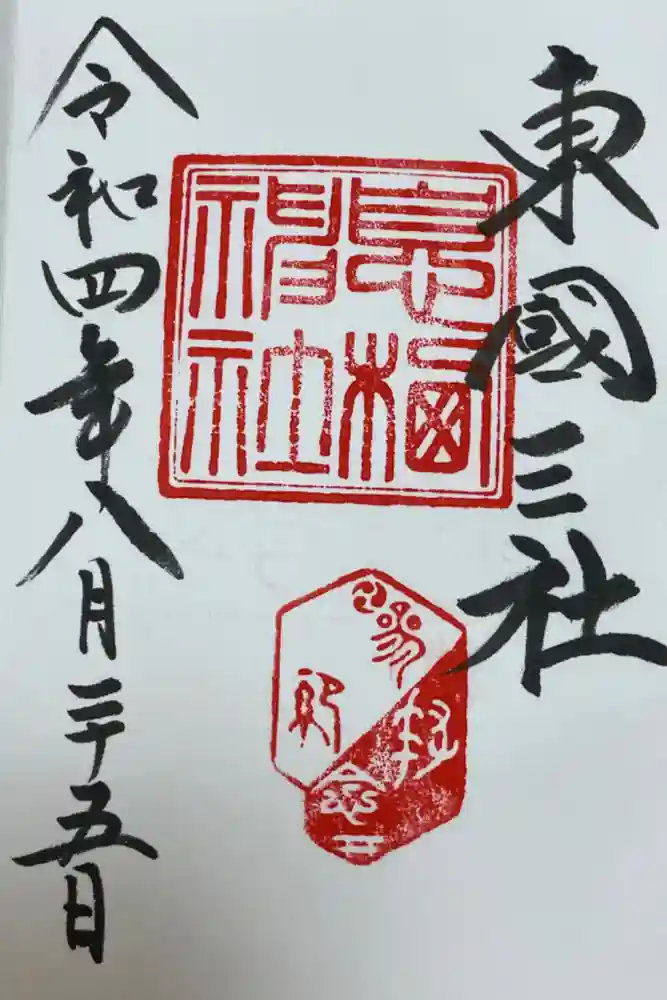 東國三社
息栖神社
令和四年八月二十五日